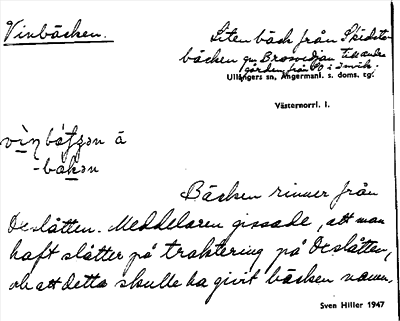 Vinbäcken.
Liten bäck från Skidste-
bäcken gm Brosvedjan till andra
gården från SO i invik.
Ullångers sn, Ångermanl. s. doms. tg.
Västernorrl. l.
Bäcken rinner från
Deslåtten. Meddelaren gissade, att man
haft slåtter på traktering på Deslåtten,
och att detta skulle ha givit bäcken namn.
Sven Hiller 1947